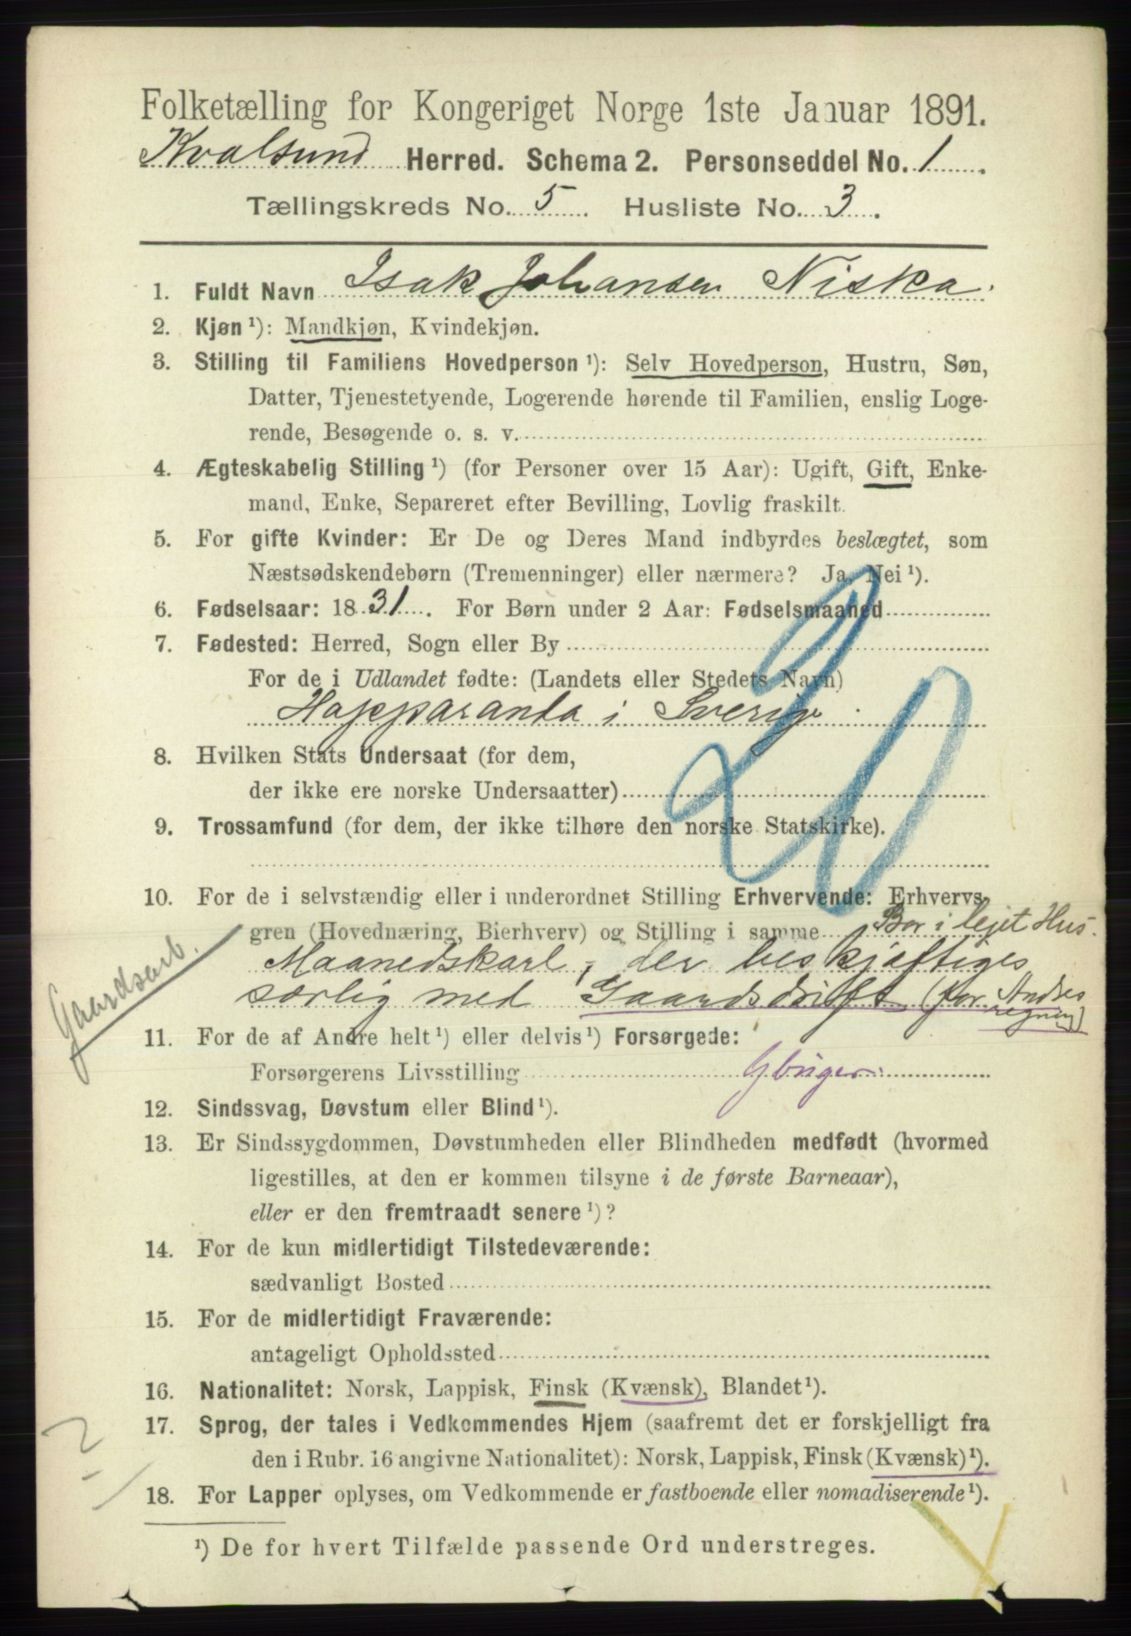 Folketælling for Kongeriget Norge 1ste Januar 1891.
Kvalsund Herred. Schema 2. Personseddel No. 1.
Tællingskreds No. 5. Husliste No. 3.
1. Fuldt Navn Isak Johansen Niska.
2. Kjøn ¹): Mandkjøn, Kvindekjøn.
3. Stilling til Familiens Hovedperson ¹): Selv Hovedperson, Hustru, Søn,
Datter, Tjenestetyende, Logerende hørende til Familien, enslig Loge-
rende, Besøgende o. s. v.
4. Ægteskabelig Stilling ¹) (for Personer over 15 Aar): Ugift, Gift, Enke-
mand, Enke, Separeret efter Bevilling, Lovlig fraskilt.
5. For gifte Kvinder: Er De og Deres Mand indbyrdes beslægtet, som
Næstsødskendebørn (Tremenninger) eller nærmere? Ja, Nei ¹).
6. Fødselsaar: 1831. For Børn under 2 Aar: Fødselsmaaned
7. Fødested: Herred, Sogn eller By
For de i Udlandet fødte: (Landets eller Stedets Navn)
Happaranda i Sverig.
20
8. Hvilken Stats Undersaat (for dem,
der ikke ere norske Undersaatter)
9. Trossamfund (for dem, der ikke tilhøre den norske Statskirke).
10. For de i selvstændig eller i underordnet Stilling Erhvervende: Erhvervs-
gren (Hovednæring, Bierhverv) og Stilling i samme Bor i lejet Hus.
Maanedskarl, der beskjæftiges
særlig med Gaardsdrift (for Andres
regning)
Gaardsarb.
11. For de af Andre helt ¹) eller delvis ¹) Forsørgede:
Forsørgerens Livsstilling
12. Sindssvag, Døvstum eller Blind ¹).
13. Er Sindssygdommen, Døvstumheden eller Blindheden medfødt (hvormed
ligestilles, at den er kommen tilsyne i de første Barneaar),
eller er den fremtraadt senere ¹)?
14. For de kun midlertidigt Tilstedeværende:
sædvanligt Bosted
15. For de midlertidigt Fraværende:
antageligt Opholdssted
16. Nationalitet: Norsk, Lappisk, Finsk (Kvænsk), Blandet ¹).
17. Sprog, der tales i Vedkommendes Hjem (saafremt det er forskjelligt fra
den i Rubr. 16 angivne Nationalitet): Norsk, Lappisk, Finsk (Kvænsk) ¹).
18. For Lapper oplyses, om Vedkommende er fastboende eller nomadiserende ¹).
¹) De for hvert Tilfælde passende Ord understreges.